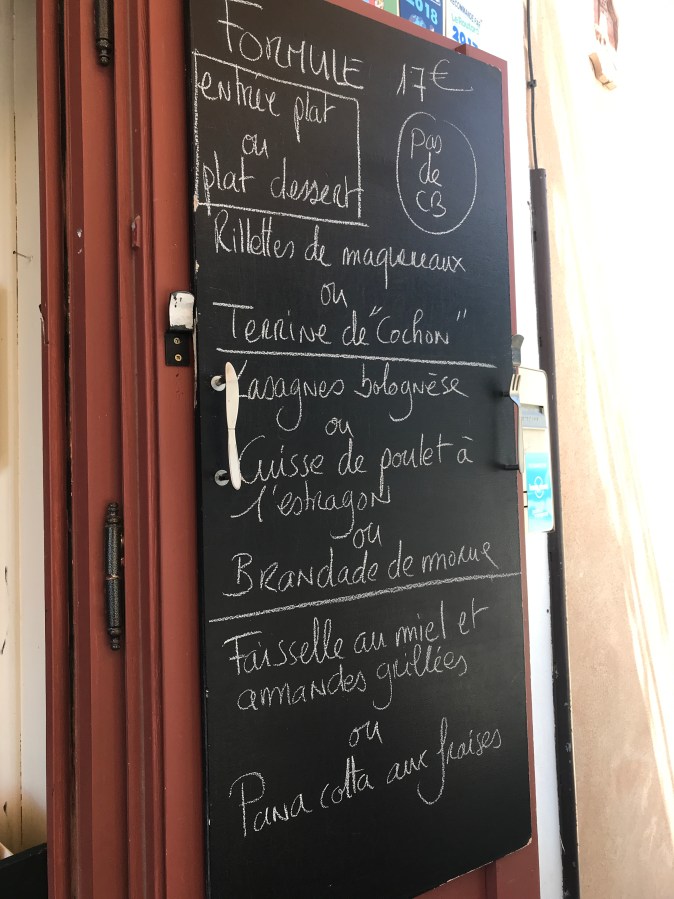 2018
RECOMMANDÉ
FORMULE 17€
entrée plat
ou
plat dessert
pas
de
CB
Rillettes de maquereaux
ou
TERRINE de "Cochon"
Lasagnes bolognèse
ou
Cuisse de poulet à
l'estragon
ou
BRANDADE de morue
Faisselle au miel et
amandes grillées
ou
PANA cotta aux fraises